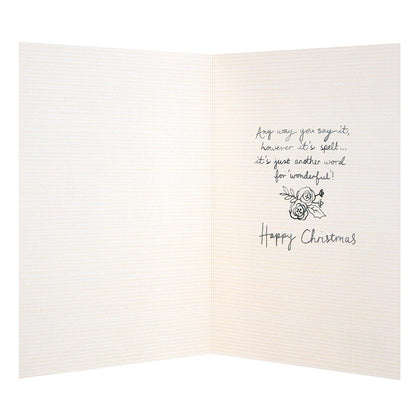 Any way you say it,
however it's spelt...
it's just another word
for 'wonderful'!
Happy Christmas